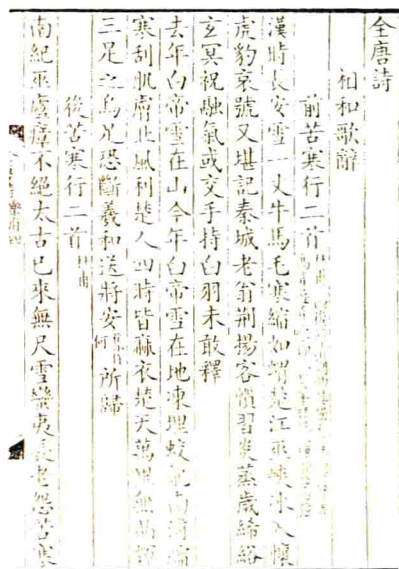 全唐詩
相和歌辭
前苦寒行二首 杜甫
漢時長安雪一丈牛馬毛寒縮如蝟楚江巫峽冰入懷
虎豹哀號又堪記秦城老翁荊揚客慣習炎蒸歲絺綌
玄冥祝融氣或交手持白羽未敢釋
去年白帝雪在山今年白帝雪在地凍埋蛟龍南浦縮
寒刮肌膚北風利楚人四時皆麻衣楚天萬里無晶輝
三足之烏足恐斷羲和送將安何所歸
後苦寒行二首 杜甫
南紀巫廬瘴不絕太古已來無尺雪蠻夷長老怨苦寒